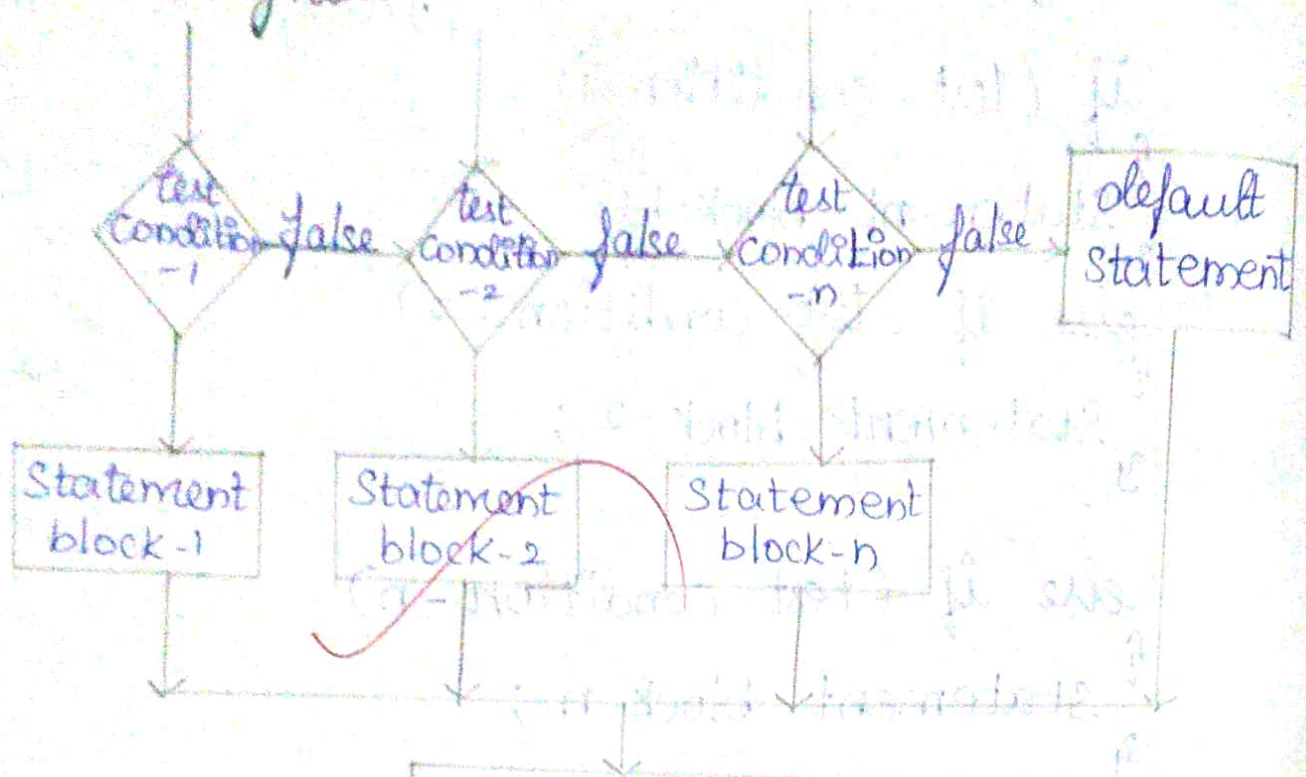 test
Condition
-1
false
test
Condition
-2
false
test
Condition
-n
false
default
Statement
Statement
block-1
Statement
block-2
Statement
block-n